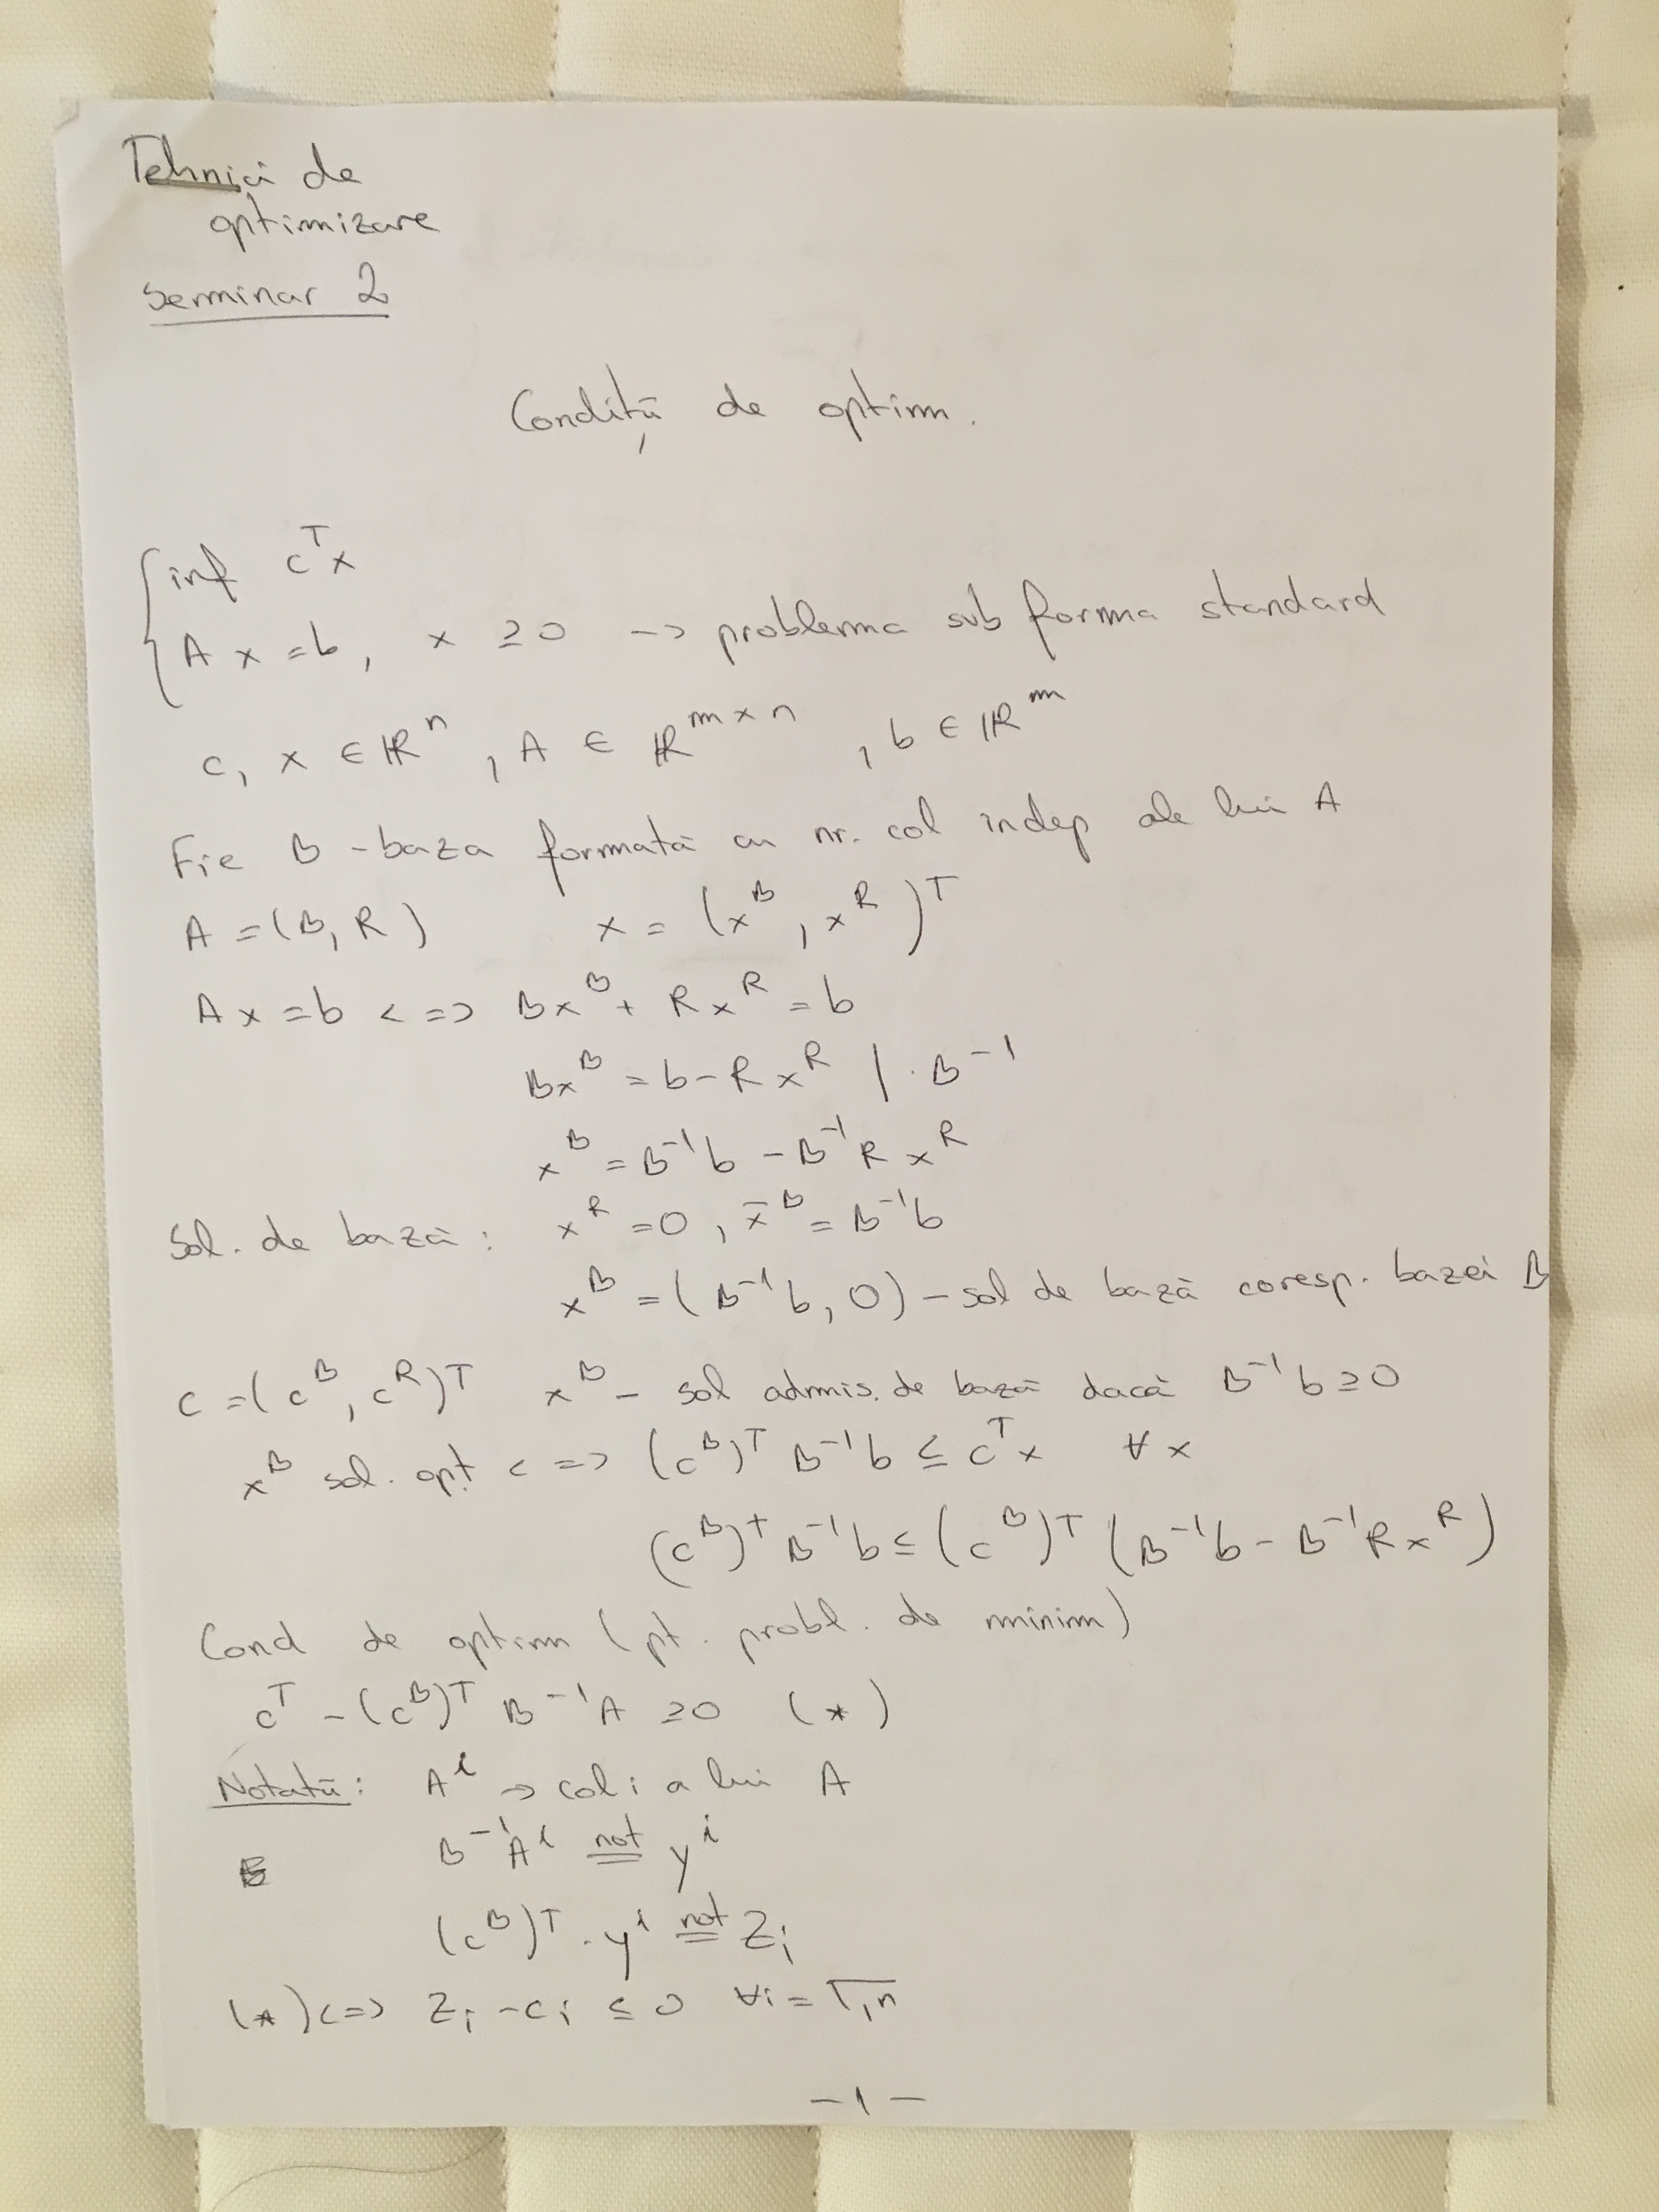 Tehnici de
optimizare
Seminar 2
Condiții de optim.
inf c^T x
A x = b, x ≥ 0 -> problema sub forma standard
c, x ∈ ℝ^n, A ∈ ℝ^{m×n}, b ∈ ℝ^m
Fie B - baza formată cu nr. col indep ale lui A
A = (B, R) x = (x^B, x^R)^T
A x = b <=> Bx^B + R x^R = b
Bx^B = b - R x^R | · B^{-1}
x^B = B^{-1}b - B^{-1}R x^R
Sol. de bază: x^R = 0, x̄^B = B^{-1}b
x^B = (B^{-1}b, 0) - sol de bază coresp. bazei B
c = (c^B, c^R)^T x^B - sol admis. de bază dacă B^{-1}b ≥ 0
x^B sol. opt <=> (c^B)^T B^{-1}b ≤ c^T x ∀ x
(c^B)^T B^{-1}b ≤ (c^B)^T (B^{-1}b - B^{-1}R x^R)
Cond de optim (pt. probl. de minim)
c^T - (c^B)^T B^{-1}A ≥ 0 (*)
Notații: A^i -> col i a lui A
B^{-1}A^i not= y^i
(c^B)^T · y^i not= Z_i
(*) <=> Z_i - c_i ≤ 0 ∀i = 1,n
- 1 -